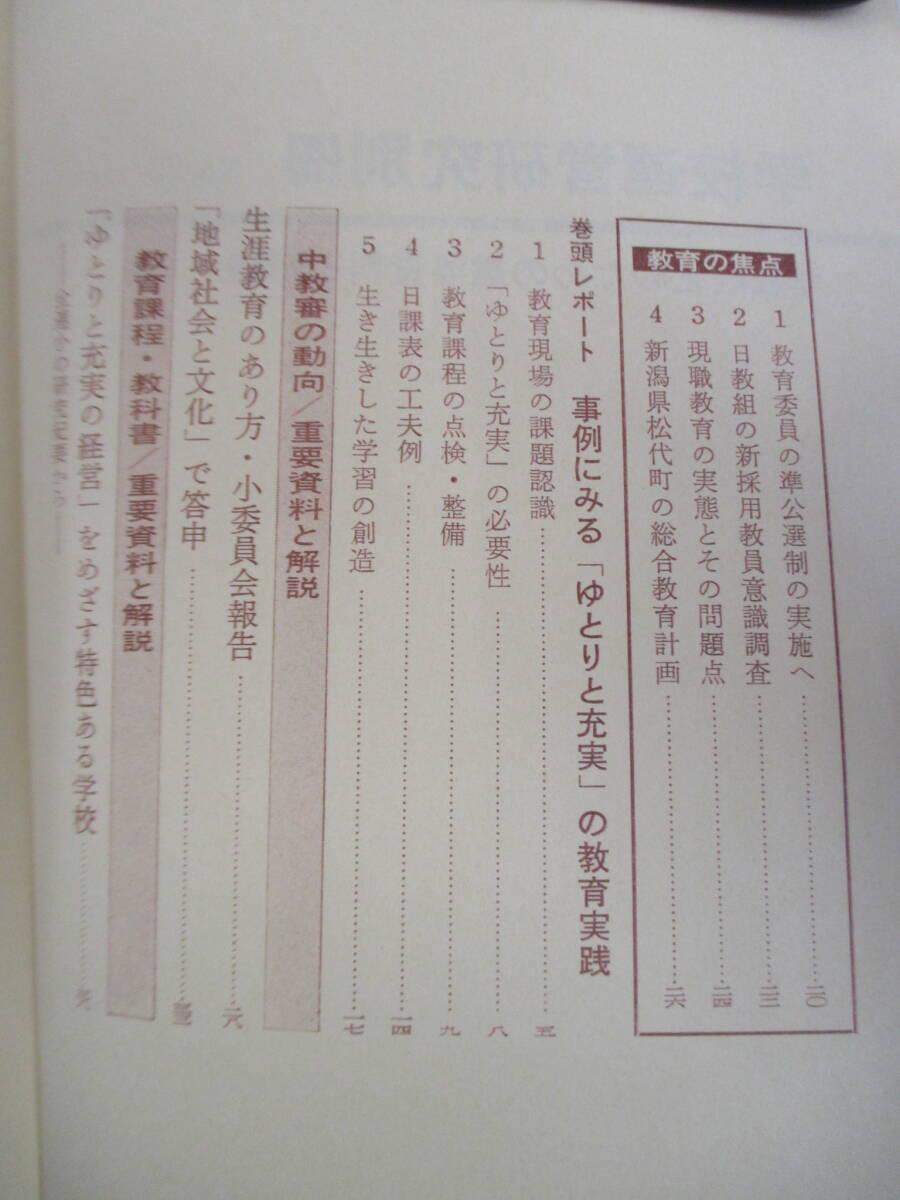 教育の焦点
1 教育委員の準公選制の実施へ……二〇
2 日教組の新採用教員意識調査……二二
3 現職教育の実態とその問題点……二四
4 新潟県松代町の総合教育計画……二六
巻頭レポート 事例にみる「ゆとりと充実」の教育実践
1 教育現場の課題認識……五
2 「ゆとりと充実」の必要性……八
3 教育課程の点検・整備……九
4 日課表の工夫例……一四
5 生き生きした学習の創造……一七
中教審の動向/重要資料と解説
生涯教育のあり方・小委員会報告……二八
「地域社会と文化」で答申
教育課程・教科書/重要資料と解説
「ゆとりと充実の経営」をめざす特色ある学校
学校運営研究別冊